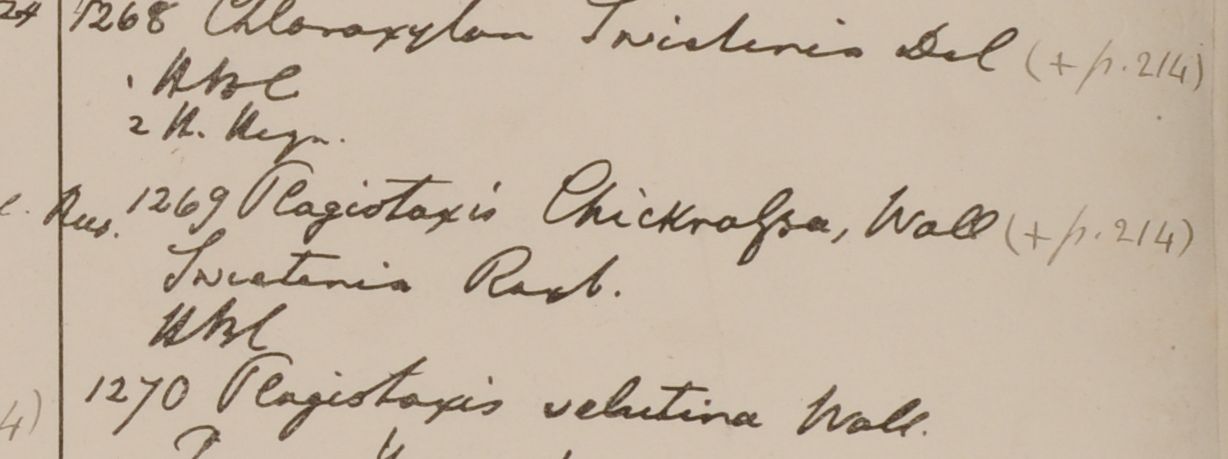 24 1268 Chloroxylon Swietenia Del (+ p. 214)
1 HBC
2 H. Heyn.
Rus. 1269 Plagiotaxis Chickrassa, Wall (+ p. 214)
Swietenia Roxb.
HBC
1270 Plagiotaxis velutina Wall.
4)